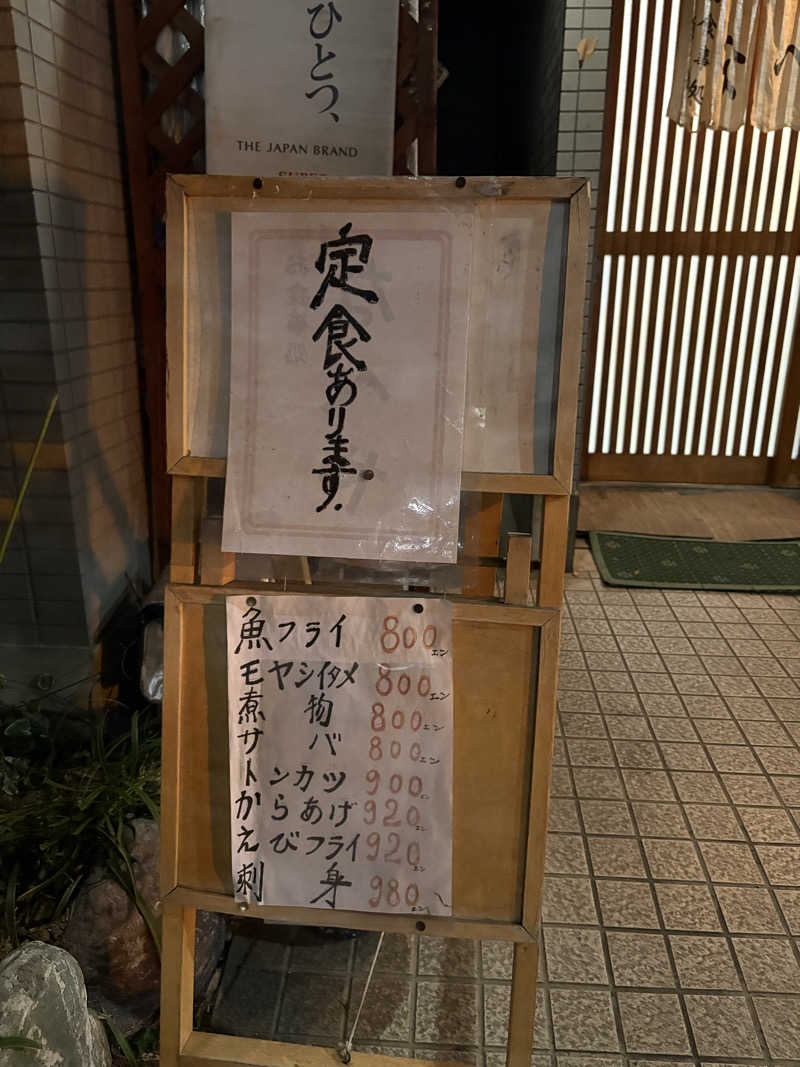 ひとつ、
THE JAPAN BRAND
SUPER
定食あります.
魚フライ 800エン
モヤシイタメ 800エン
煮物 800エン
サバ 800エン
トンカツ 900エン
からあげ 920エン
えびフライ 920エン
刺身 980エン〜